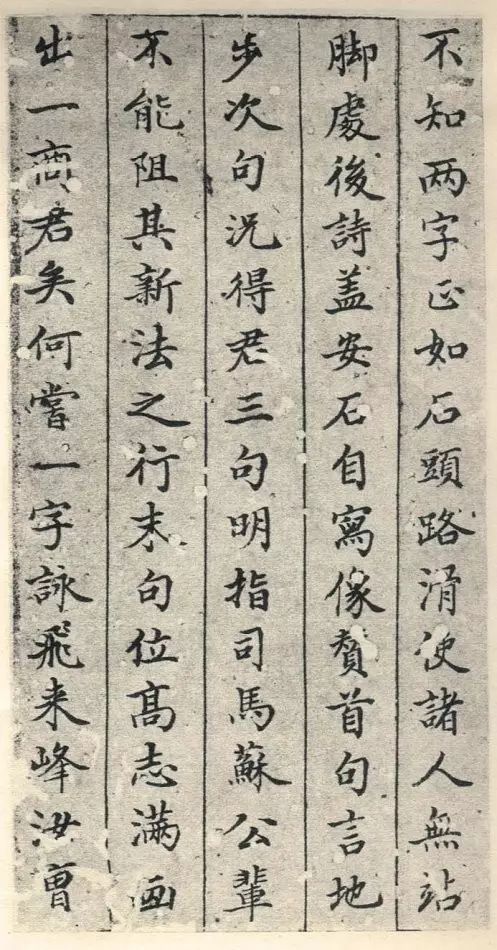 不知两字正如石頭路滑使諸人無站
脚處後詩盖安石自寫像賛首句言地
步次句况得君三句明指司馬蘇公輩
不能阻其新法之行末句位髙志满画
出一商君矣何嘗一字詠飛来峰汝曹